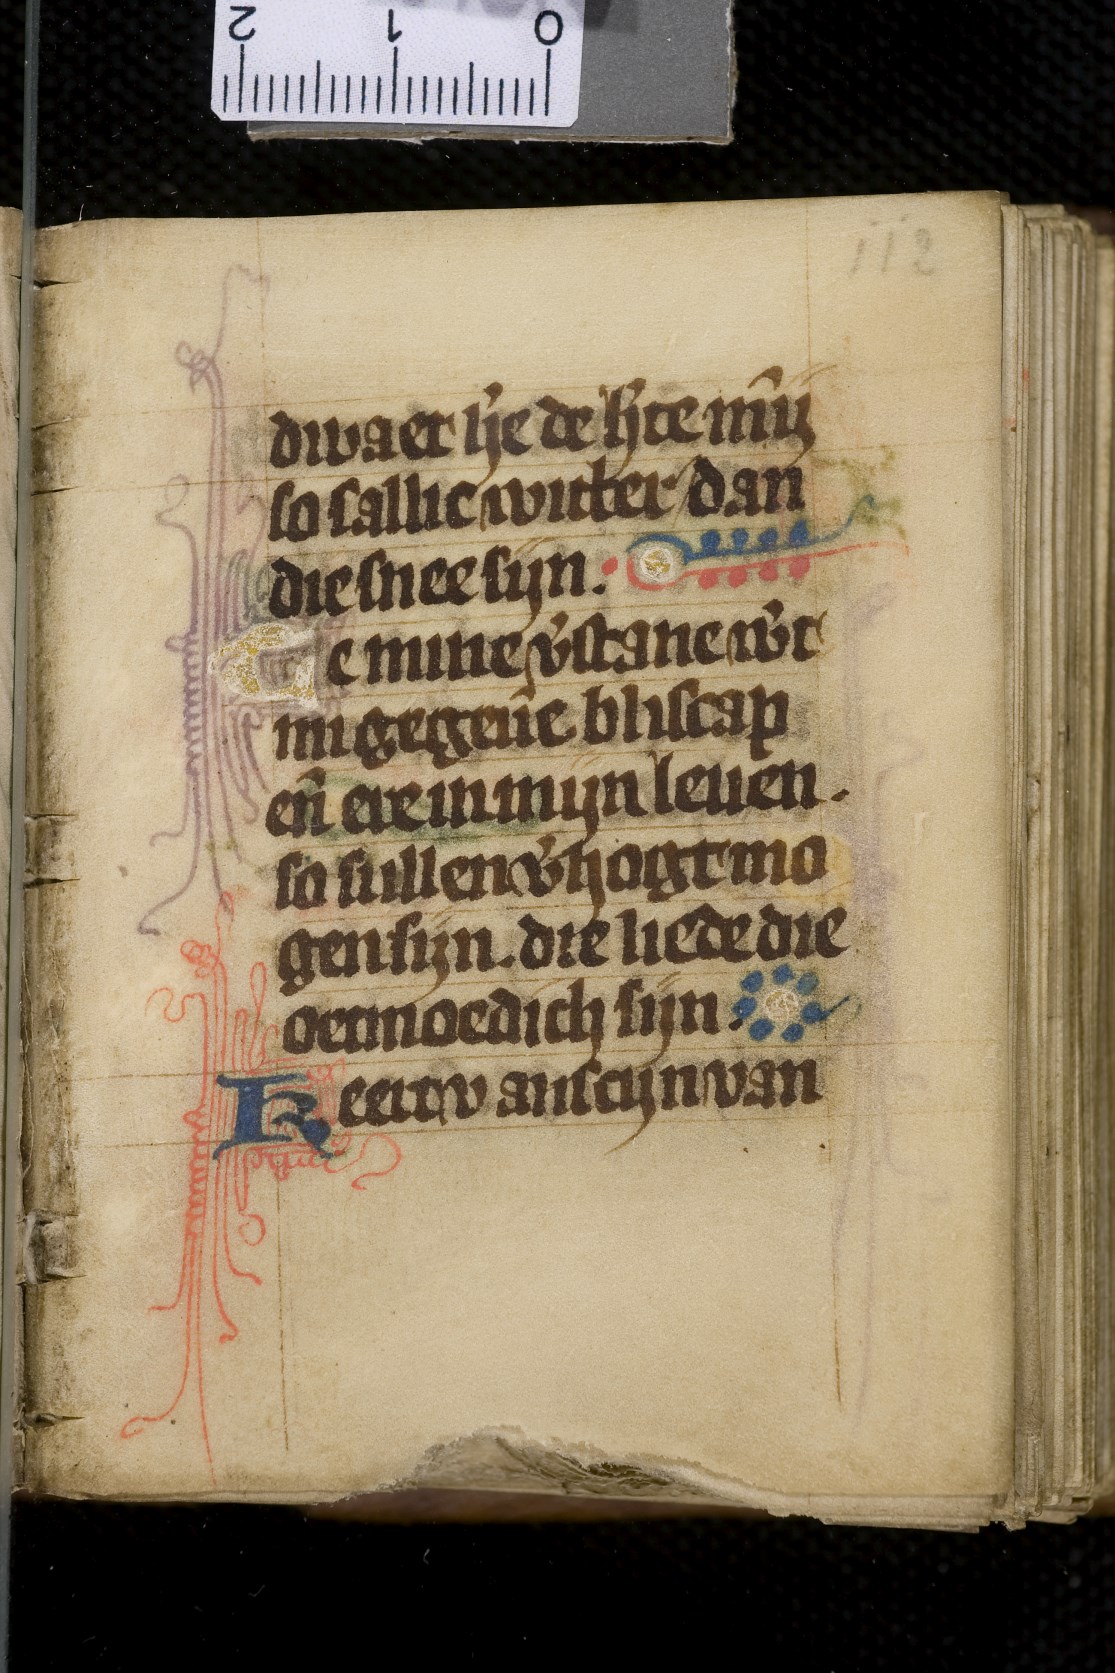 2 1 0
112
dwaet h̄e de h̄te mȳ
so sallic witter dan
die snee sijn.
Te mine v̄stane wt
mi gegeūe bliscap
en̄ ere in mijn leuen.
so sullen v̄hogt mo
gen sijn. die liede die
oetmoedich sijn.
Keert v anscijn van